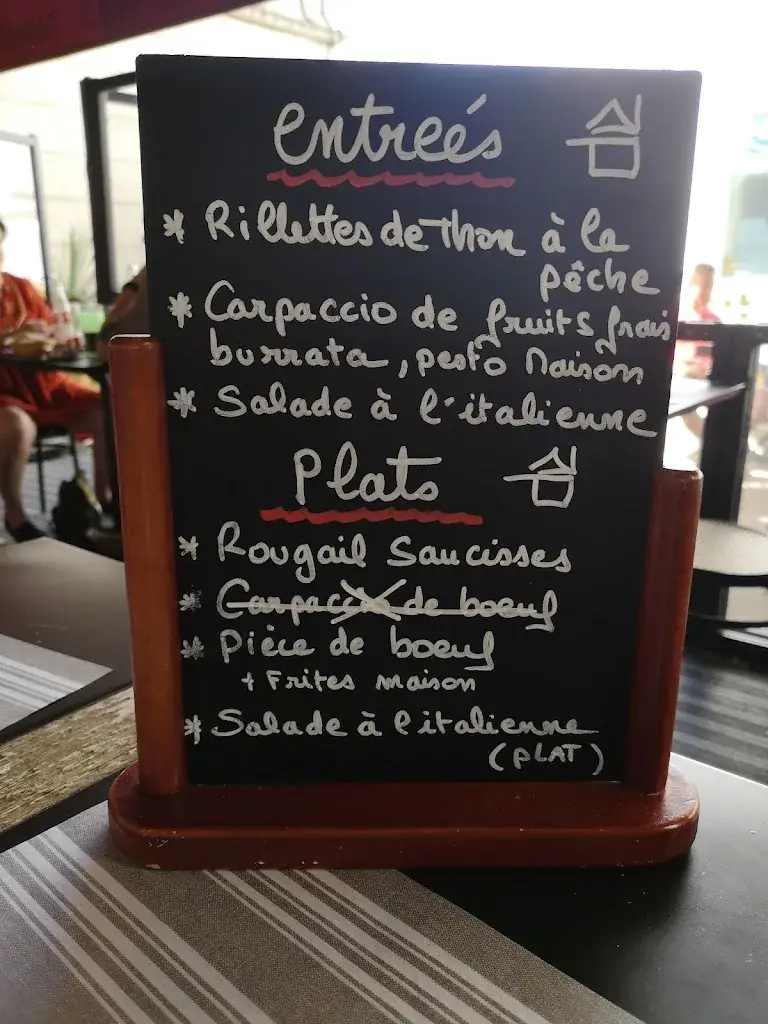 entreés
* Rillettes de Thon à la
pêche
* Carpaccio de fruits frais
burrata, pesto Maison
* Salade à l'italienne
Plats
* Rougail Saucisses
* Carpaccio de boeuf
* Pièce de boeuf
+ Frites maison
* Salade à l'italienne
(PLAT)